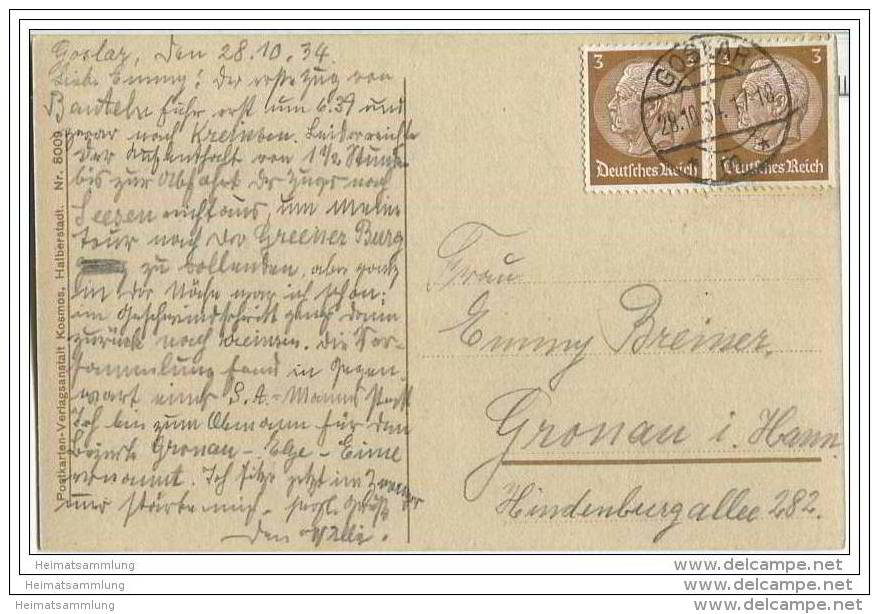 Goslar, den 28.10.34.
Liebe Emmy! Der erste Zug von
Banteln fuhr erst um 6.39 und
zwar nach Kreiensen. Leider reichte
der Aufenthalt von 1½ Stunde
bis zur Abfahrt des Zugs nach
Seesen nicht aus, um meine
Tour nach der Greener Burg
zu vollenden, aber ganz
in der Nähe war ich schon;
im Geschwindschritt gings dann
zurück nach Kreiensen. Die Ver-
sammlung fand in Gegen-
wart eines S.A.-Manns statt
Ich bin zum Obmann für den
Bezirk Gronau - Elze - Eime
ernannt. Ich sitze jetzt im
und stärke mich. Herzl. Grüße
Dein Willi.
Postkarten-Verlagsanstalt Kosmos, Halberstadt. Nr. 8009
3 3
Deutsches Reich Deutsches Reich
GOSLAR
28.10.34.17-18
Frau
Emmy Breiner.
Gronau i. Hann.
Hindenburgallee 282.
Heimatsammlung
Heimatsammlung
Heimatsammlung
www.delcampe.net
www.delcampe.net
www.delcampe.net